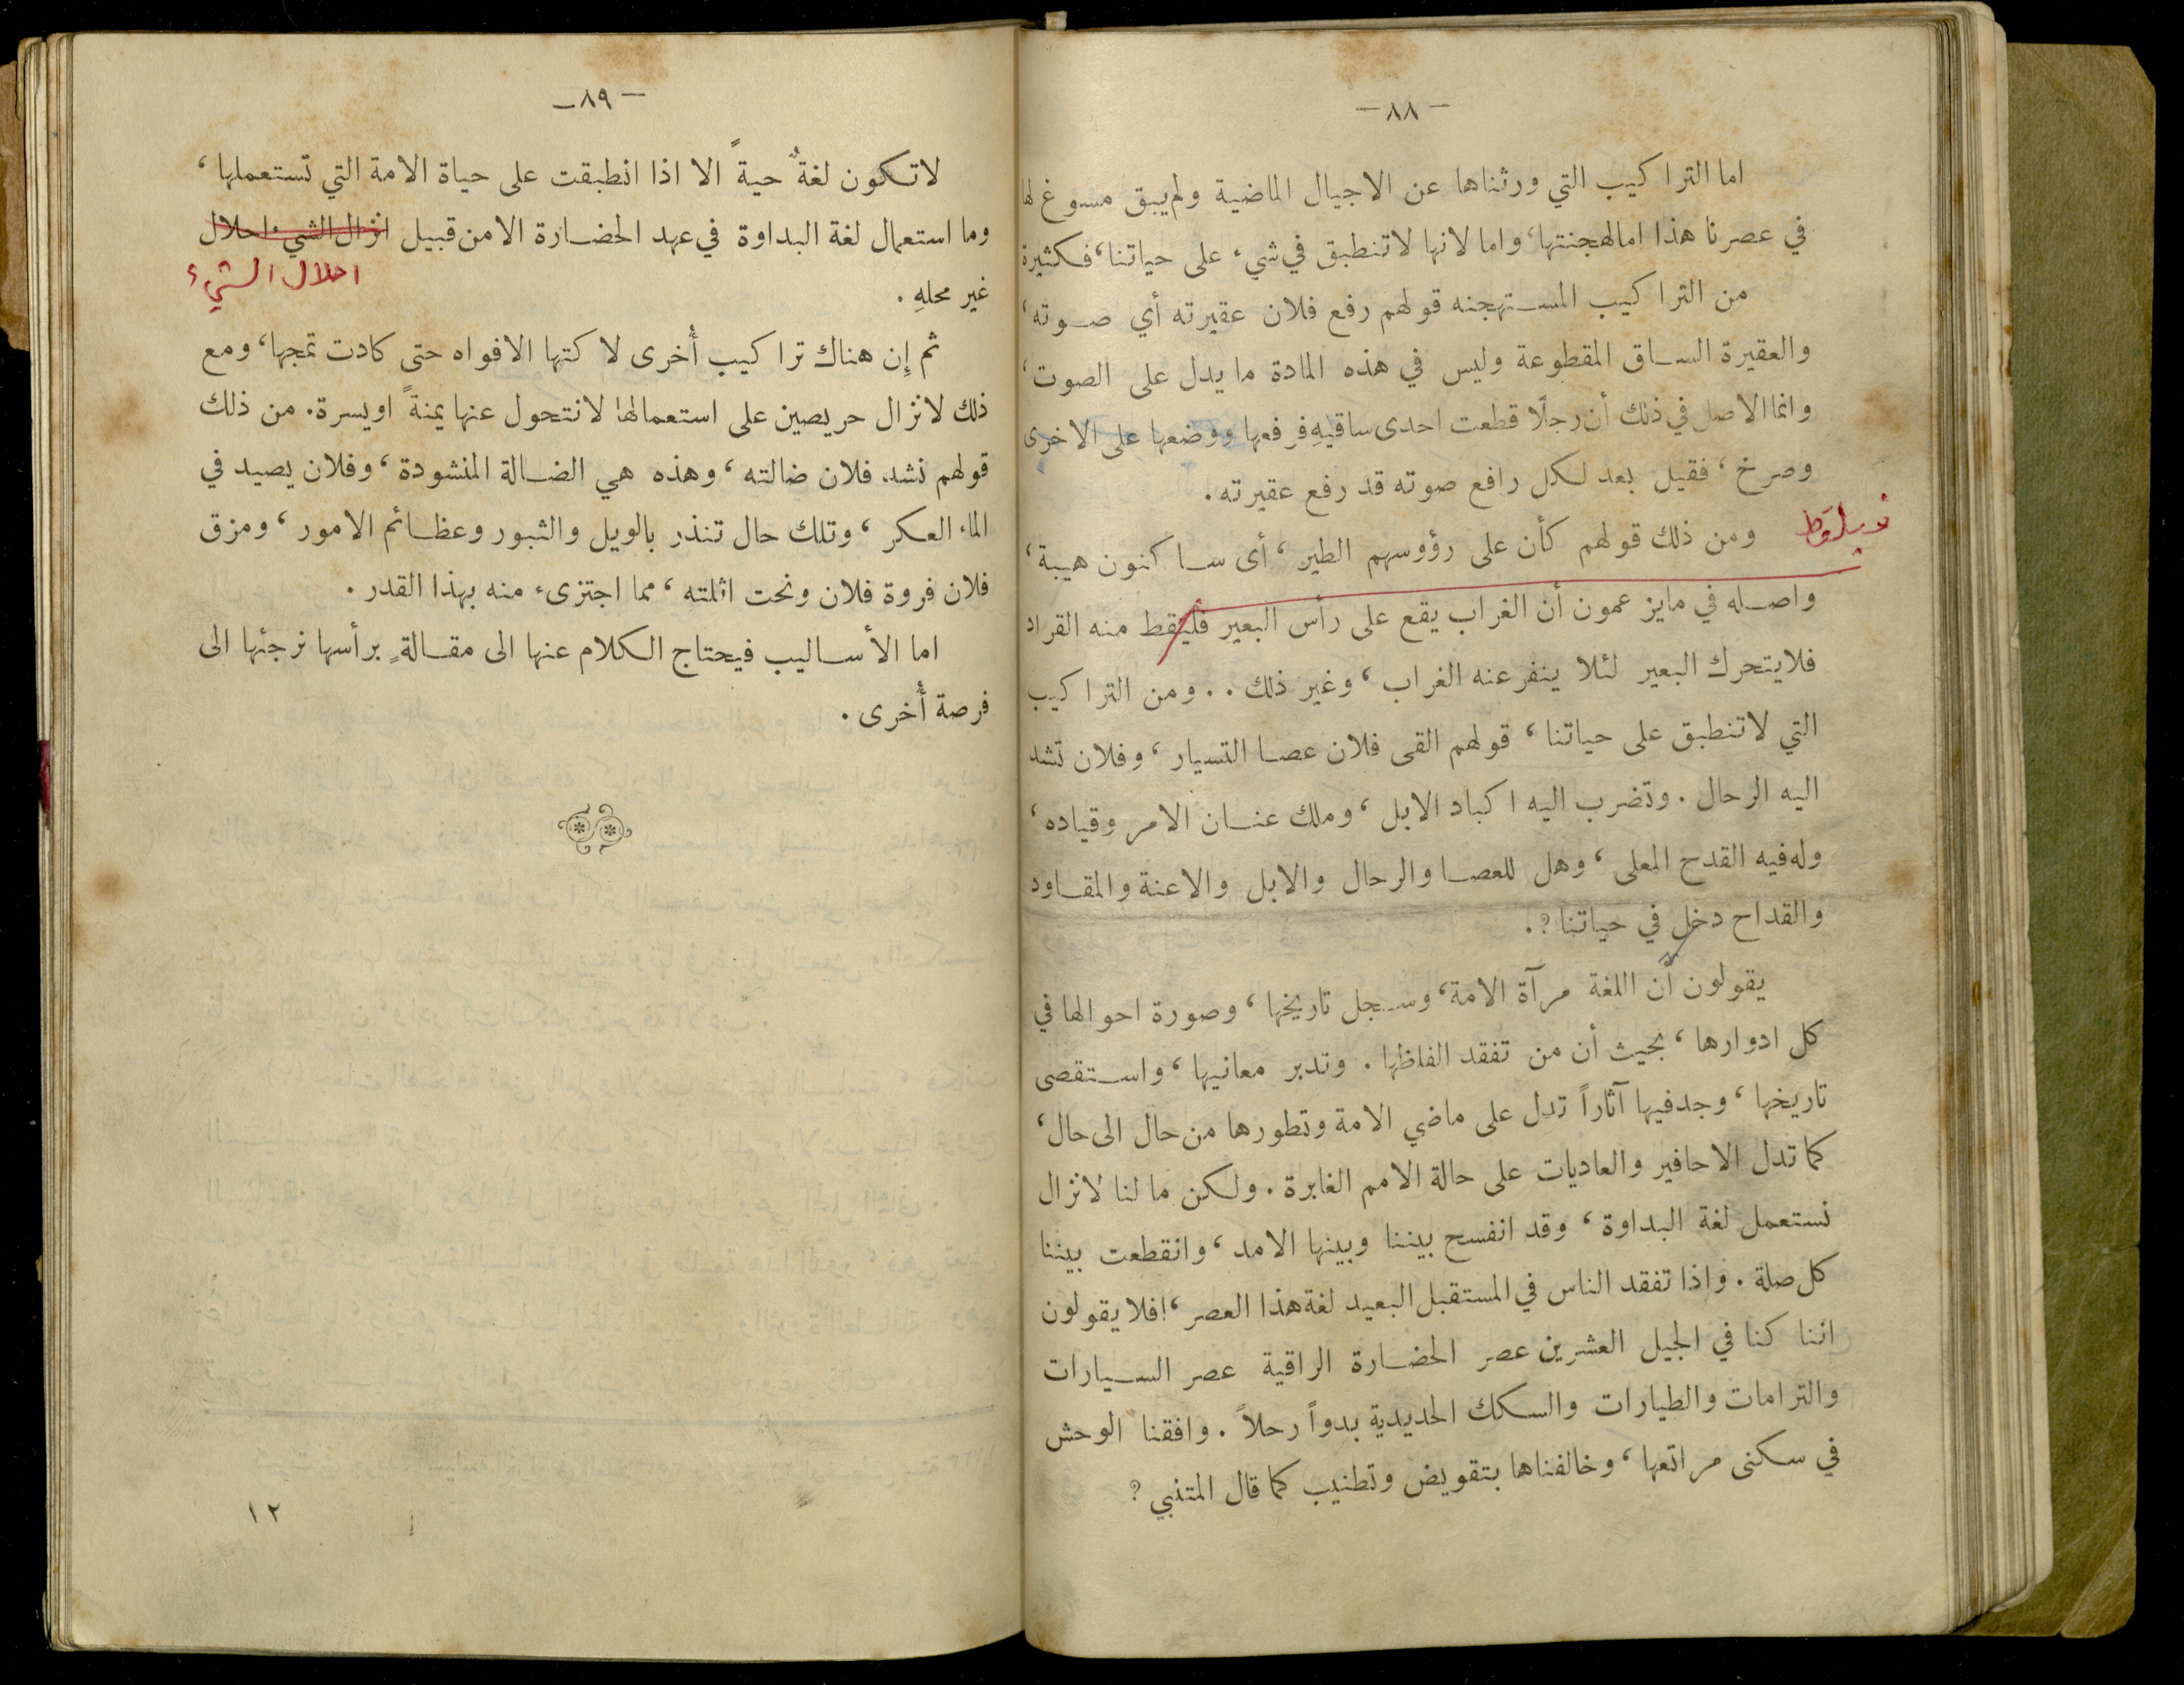 — ٨٨ —
اما التراكيب التي ورثناها عن الاجيال الماضية ولم يبق مسوغ لها
في عصرنا هذا اما لهجنتها، واما لانها لا تنطبق في شيء على حياتنا، فكثيرة
من التراكيب المستهجنه قولهم رفع فلان عقيرته أي صوته،
والعقيرة الساق المقطوعة وليس في هذه المادة ما يدل على الصوت،
وانما الاصل في ذلك أن رجلًا قطعت احدى ساقيهِ فرفعها ووضعها على الاخرى
وصرخ، فقيل بعد لكل رافع صوته قد رفع عقيرته.
ومن ذلك قولهم كأن على رؤوسهم الطير، أى ساكنون هيبة،
واصله في مايزعمون أن الغراب يقع على رأس البعير فليتقط منه القراد
فلا يتحرك البعير لئلا ينفر عنه الغراب، وغير ذلك . . ومن التراكيب
التي لا تنطبق على حياتنا، قولهم القى فلان عصا التسيار، وفلان تشد
اليه الرحال. وتضرب اليه اكباد الابل، وملك عنان الامر وقياده،
وله فيه القدح المعلى، وهل للعصا والرحال والابل والاعنة والمقاود
والقداح دخل في حياتنا؟.
يقولون أن اللغة مرآة الامة، وسجل تاريخها، وصورة احوالها في
كل ادوارها، بحيث أن من تفقد الفاظها. وتدبر معانيها، واستقصى
تاريخها، وجد فيها آثاراً تدل على ماضي الامة وتطورها من حال الى حال،
كما تدل الاحافير والعاديات على حالة الامم الغابرة. ولكن ما لنا لا نزال
نستعمل لغة البداوة، وقد انفسح بيننا وبينها الامد، وانقطعت بيننا
كل صلة. واذا تفقد الناس في المستقبل البعيد لغة هذا العصر، افلا يقولون
اننا كنا في الجيل العشرين عصر الحضارة الراقية عصر السيارات
والترامات والطيارات والسكك الحديدية بدواً رحلاً. وافقنا الوحش
في سكنى مراتعها، وخالفناها بتقويض وتطنيب كما قال المتنبي؟
— ٨٩ —
لا تكون لغةٌ حيةً الا اذا انطبقت على حياة الامة التي تستعملها،
وما استعمال لغة البداوة في عهد الحضارة الا من قبيل انزال الشيء احلال
احلال الشيء
غير محلهِ.
ثم إِن هناك تراكيب أُخرى لاكتها الافواه حتى كادت تمجها، ومع
ذلك لا نزال حريصين على استعمالها لا نتحول عنها يمنةً او يسرة. من ذلك
قولهم نشد فلان ضالته، وهذه هي الضالة المنشودة، وفلان يصيد في
الماء العكر، وتلك حال تنذر بالويل والثبور وعظائم الامور، ومزق
فلان فروة فلان ونحت اثلته، مما اجتزىء منه بهذا القدر.
اما الأساليب فيحتاج الكلام عنها الى مقالةٍ برأسها نرجئها الى
فرصة أُخرى.
١٢